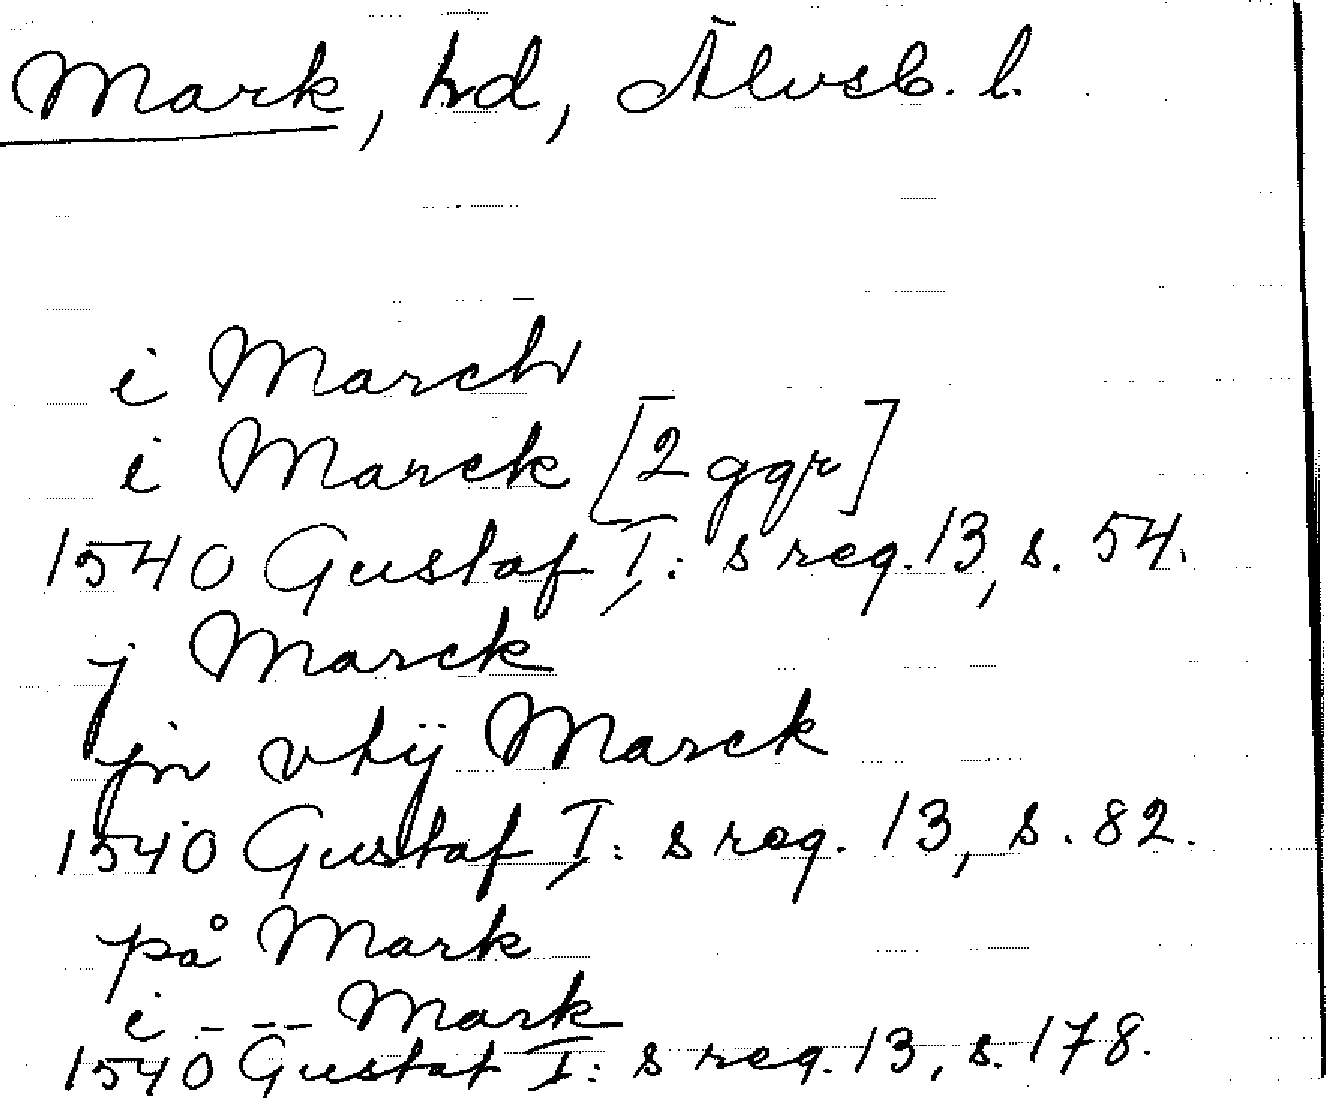 Mark, hd, Älvsb. l.
i March
i Marck [2 ggr]
1540 Gustaf I:s reg. 13, s. 54.
j Marck
jn vtij Marck
1540 Gustaf I:s reg. 13, s. 82.
på Mark
i --- Mark
1540 Gustaf I:s reg. 13, s. 178.